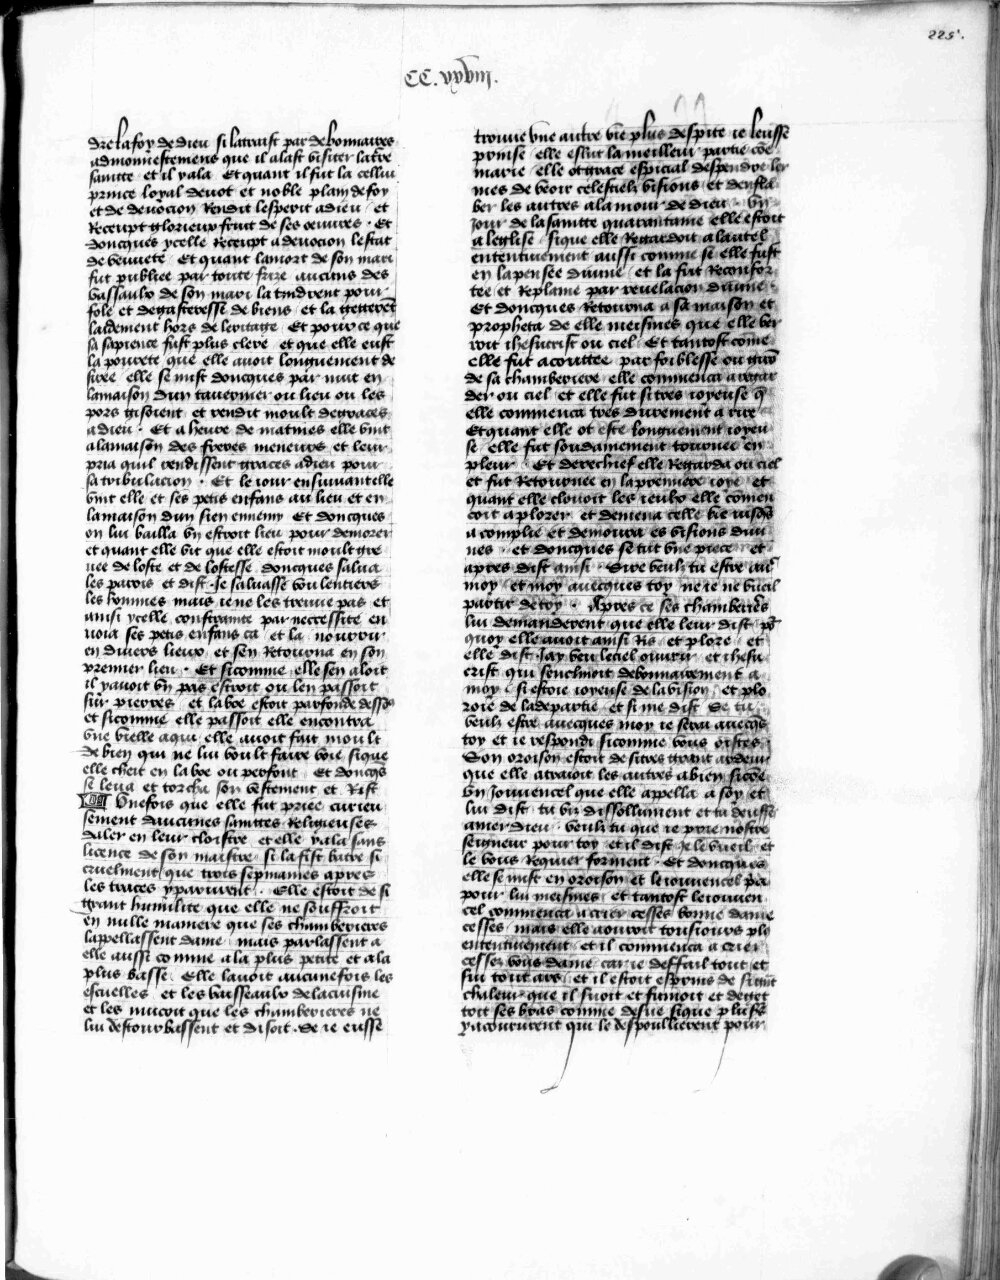 225.
CC. xxviii.
dre la foy de dieu si latraist par debonnaires
admonnestemens que il alast visiter la tre
saincte et il y ala Et quant il fut la cellui
prince loyal devot et noble plain de foy
et de devocion Rendit lesperit a dieu et
Receupt glorieux fruit de ses oeuvres Et
doncques ycelle Receupt a devocion lestat
de vefvete Et quant la mort de son mari
fut publiee par toute aucuns des
vassaulx de son mari la tindrent pour
fole et degasteresse de biens et la getterent
laidement hors de leritage Et pour ce que
sa sapience fust plus clere et que elle eust
la povrete que elle avoit longuement de
siree elle se mist doncques par nuit en
la maison dun tavernier ou lieu ou les
pors gisoient et rendit moult de graces
a dieu Et a heure de matines elle vint
a la maison des freres meneurs et leur
pria quil rendissent graces a dieu pour
sa tribulacion Et le jour ensuivant elle
vint elle et ses petis enfans au lieu et en
la maison dun sien ennemy Et doncques
on lui bailla un estroit lieu pour demorer
et quant elle vit que elle estoit moult gre
vee de loste et de lostesse doncques salua
les parois et dist Je saluasse voulentiers
les hommes mais je ne les treuve pas et
ainsi ycelle constrainte par neccessite en
voia ses petis enfans ca et la nourrir
en divers lieux et sen Retourna en son
premier lieu Et si comme elle sen aloit
il y avoit un pas estroit ou len passoit
sur pierres et la boe estoit parfonde dessoubz
et si comme elle passoit elle encontra
une vielle a qui elle avoit fait moult
de bien qui ne lui voult faire voie si que
elle cheit en la boe ou perfont Et doncques
se leva et torcha son vestement et Rist
Une fois que elle fut priee curieu
sement daucunes sainctes Religieuses
daler en leur cloistre et elle y ala sans
licence de son maistre si la fist batre si
cruelment que trois sepmaines apres
les traces y parurent Elle estoit de si
grant humilite que elle ne souffroit
en nulle maniere que ses chamberieres
lappellassent dame mais parlassent a
elle aussi comme a la plus petite et a la
plus basse Elle lavoit aucunefois les
escuelles et les vaisseaulx de la cuisine
et les mucoit que les chamberieres ne
lui destourbassent et disoit Se je eusse
trouve une autre vie plus despite je leusse
prinse elle eslut la meilleur partie come
marie elle ot grace especial despendre ler
mes de veoir celestielz visions et denfla
ber les autres a lamour de dieu Un
jour de la saincte quarantaine elle estoit
a leglise si que elle Regardoit a lautel
ententivement aussi comme se elle fust
en la pensee divine et la fut Reconfor
tee et Replaine par revelacion divine
Et doncques Retourna a sa maison et
propheta de elle meismes que elle ver
roit ihesucrist ou ciel Et tantost come
elle fut acoutee par foiblesse ou giron
de sa chamberiere elle commenca a regar
der ou ciel et elle fut si tres joyeuse que
elle commenca tres durement a rire
Et quant elle ot este longuement joyeu
se elle fut soudainement tournee en
pleur Et derechief elle Regarda ou ciel
et fut Retournee en la premiere joye et
quant elle clouoit les ieulx elle commen
coit a plorer et demena celle vie jusques
a complie et demoura es visions divi
nes et doncques se tut une piece et
apres dist ainsi Sire veulz tu estre avec
moy et moy avecques toy ne je ne vueil
partir de toy Apres ce ses chamberieres
lui demanderent que elle leur dist por
quoy elle avoit ainsi Ris et plore et
elle dist Jay veu le ciel ouvrir et ihesu
crist qui senclinoit debonnairement a
moy si estoie joyeuse de la vision et plo
roie de la departie et si me dist Se tu
veulz estre avecques moy je seray avecques
toy et je respondi si comme vous oistes
Son oroison estoit de si tres grant ardeur
que elle atraioit les autres a bien si come
Un jouvencel que elle appella a soy et
lui dist tu vis dissolument et tu deusses
amer dieu veulz tu que je prie nostre
seigneur pour toy et il dist Je le vueil et
le vous Requier forment Et doncques
elle se mist en oroison et le jouvencel pria
pour lui meismes et tantost le jouven
cel commenca a crier cesses bonne dame
cesses mais elle aouroit tousiours plus
ententivement et il commenca a crier
cesses vous dame car je deffail tout et
sui tout ars et il estoit esprins de si grant
chaleur que il suoit et fumoit et deget
toit ses bras comme desue si que plusieurs
y acoururent qui le despoullierent pour